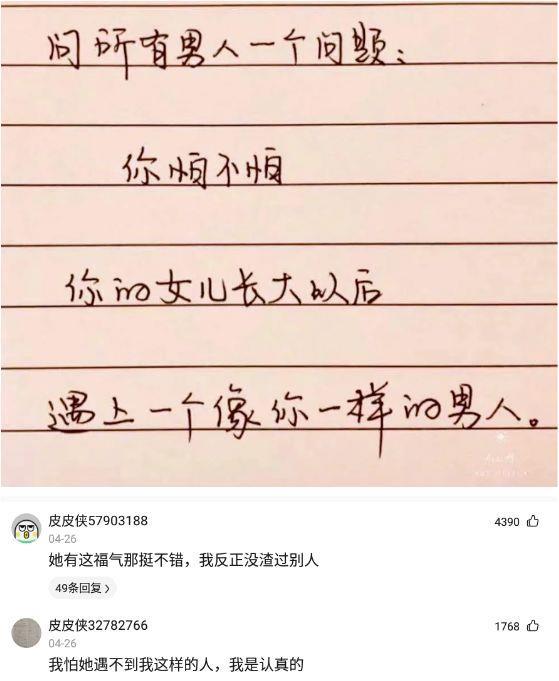 问所有男人一个问题:
你怕不怕
你的女儿长大以后
遇上一个像你一样的男人。
皮皮侠57903188
4390
04-26
她有这福气那挺不错，我反正没渣过别人
49条回复 >
皮皮侠32782766
1768
04-26
我怕她遇不到我这样的人，我是认真的